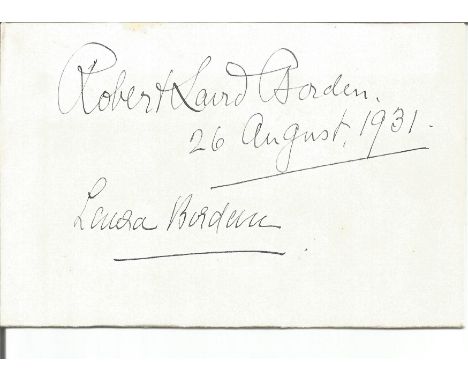 Robert Laird Borden.
26 August, 1931.
Laura Borden